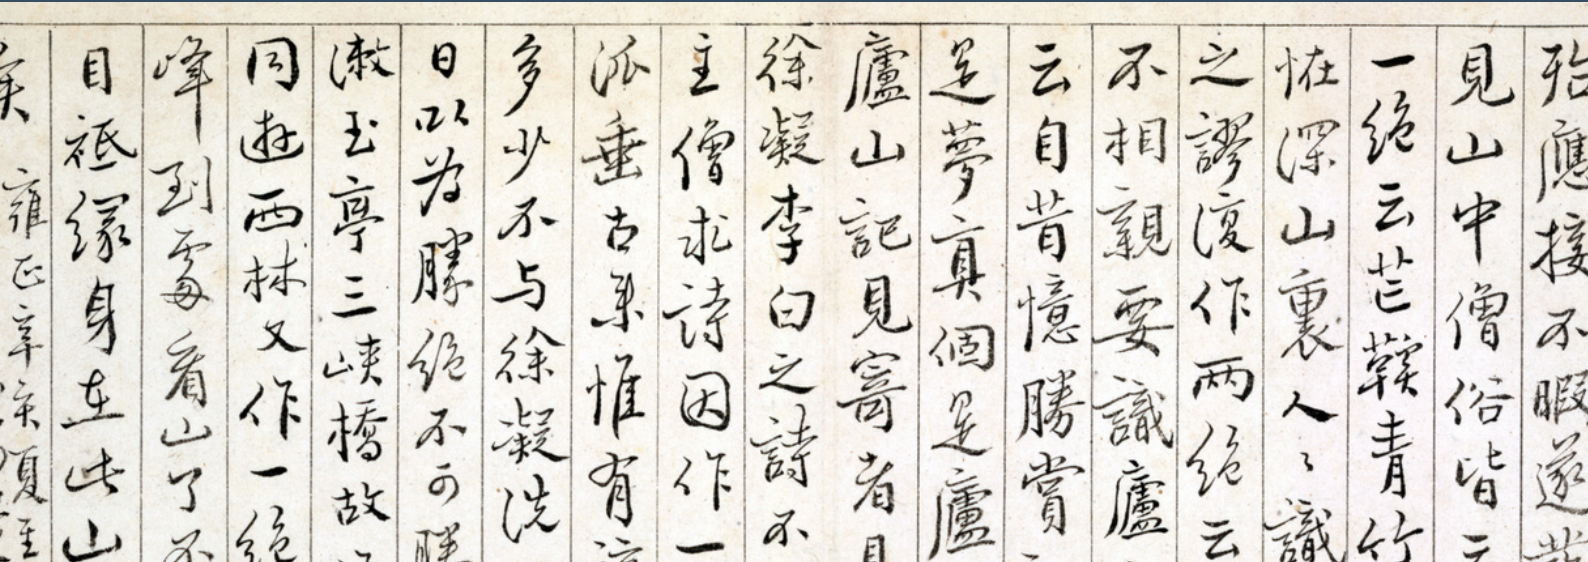 殆應接不暇遂
見山中僧俗皆云
一絶云芒鞵青竹
怪深山裏人〻識
之謬復作兩絶云
不相親要識廬
云自昔憶勝賞
是夢真個是廬
廬山記見寄者見
徐凝李白之詩不
主僧求詩因作一
派垂古來惟有
多少不与徐凝洗
日以為勝絶不可勝
漱玉亭三峽橋故
同遊西林又作一絶
峰到處看山了不
目祗緣身在此山
雍正辛亥夏